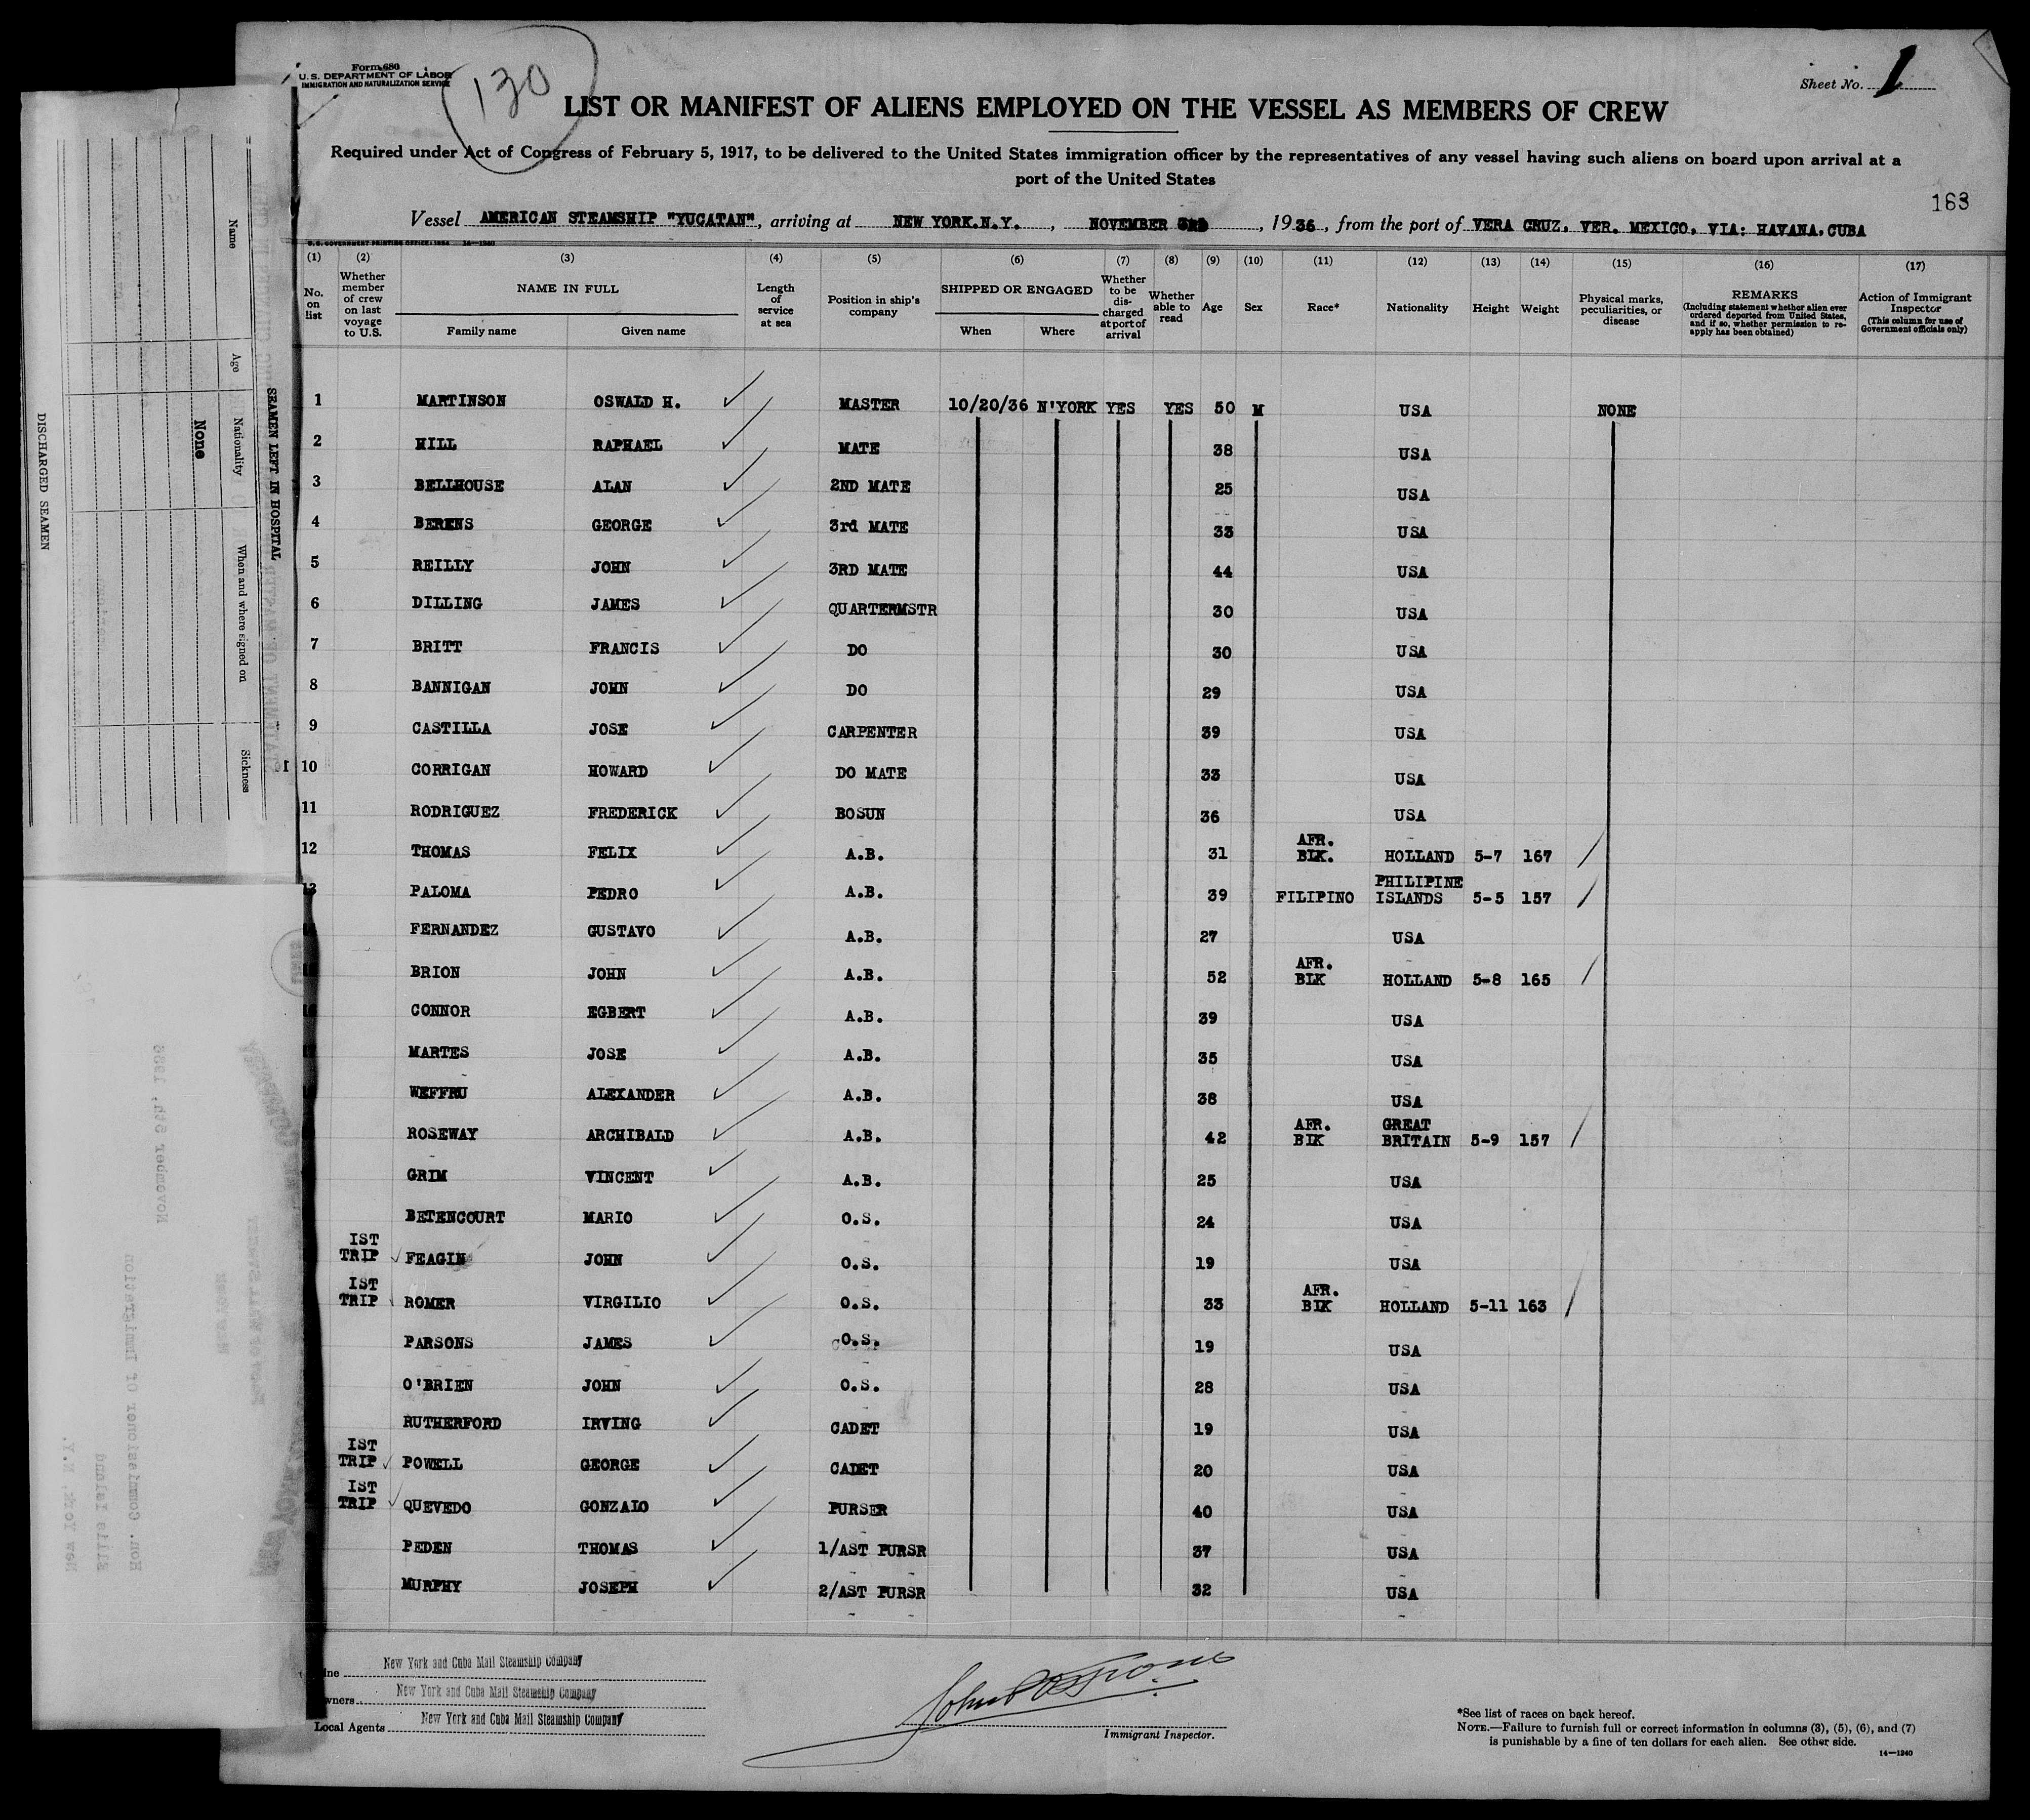 Form 680
U.S. DEPARTMENT OF LABOR
IMMIGRATION AND NATURALIZATION SERVICE
130
Sheet No. 1
LIST OR MANIFEST OF ALIENS EMPLOYED ON THE VESSEL AS MEMBERS OF CREW
Required under Act of Congress of February 5, 1917, to be delivered to the United States immigration officer by the representatives of any vessel having such aliens on board upon arrival at a
port of the United States
163
Vessel AMERICAN STEAMSHIP "YUCATAN", arriving at NEW YORK.N.Y., NOVEMBER 3RD, 1936, from the port of VERA CRUZ, VER. MEXICO, VIA: HAVANA,CUBA
(1) No. on list (2) Whether member of crew on last voyage to U.S. (3) NAME IN FULL Family name Given name (4) Length of service at sea (5) Position in ship's company (6) SHIPPED OR ENGAGED When Where (7) Whether to be discharged at port of arrival (8) Whether able to read (9) Age (10) Sex (11) Race* (12) Nationality (13) Height (14) Weight (15) Physical marks, peculiarities, or disease (16) REMARKS (Including statement whether alien ever ordered deported from United States, and if so, whether permission to re-apply has been obtained) (17) Action of Immigrant Inspector (This column for use of Government officials only)
1 MARTINSON OSWALD H. MASTER 10/20/36 N'YORK YES YES 50 M USA NONE
2 HILL RAPHAEL MATE 38 USA
3 BELLHOUSE ALAN 2ND MATE 25 USA
4 BERENS GEORGE 3rd MATE 33 USA
5 REILLY JOHN 3RD MATE 44 USA
6 DILLING JAMES QUARTERMSTR 30 USA
7 BRITT FRANCIS DO 30 USA
8 BANNIGAN JOHN DO 29 USA
9 CASTILLA JOSE CARPENTER 39 USA
10 CORRIGAN HOWARD DO MATE 33 USA
11 RODRIGUEZ FREDERICK BOSUN 36 USA
12 THOMAS FELIX A.B. 31 AFR. BLK. HOLLAND 5-7 167
13 PALOMA PEDRO A.B. 39 FILIPINO PHILIPINE ISLANDS 5-5 157
FERNANDEZ GUSTAVO A.B. 27 USA
BRION JOHN A.B. 52 AFR. BLK HOLLAND 5-8 165
CONNOR EGBERT A.B. 39 USA
MARTES JOSE A.B. 35 USA
WEFFRU ALEXANDER A.B. 38 USA
ROSEWAY ARCHIBALD A.B. 42 AFR. BLK GREAT BRITAIN 5-9 157
GRIM VINCENT A.B. 25 USA
BETENCOURT MARIO O.S. 24 USA
IST TRIP FEAGIN JOHN O.S. 19 USA
IST TRIP ROMER VIRGILIO O.S. 33 AFR. BLK HOLLAND 5-11 163
PARSONS JAMES O.S. 19 USA
O'BRIEN JOHN O.S. 28 USA
RUTHERFORD IRVING CADET 19 USA
IST TRIP POWELL GEORGE CADET 20 USA
IST TRIP QUEVEDO GONZALO PURSER 40 USA
PEDEN THOMAS 1/AST PURSR 37 USA
MURPHY JOSEPH 2/AST PURSR 32 USA
New York and Cuba Mail Steamship Company
New York and Cuba Mail Steamship Company
Local Agents New York and Cuba Mail Steamship Company
Immigrant Inspector.
*See list of races on back hereof.
NOTE.—Failure to furnish full or correct information in columns (3), (5), (6), and (7)
is punishable by a fine of ten dollars for each alien. See other side.
14—1240
SEAMEN LEFT IN HOSPITAL
Name Age Nationality When and where signed on Sickness
None
DISCHARGED SEAMEN
November 5th, 1936
Hon. Commissioner of Immigration
Ellis Island
New York, N.Y.